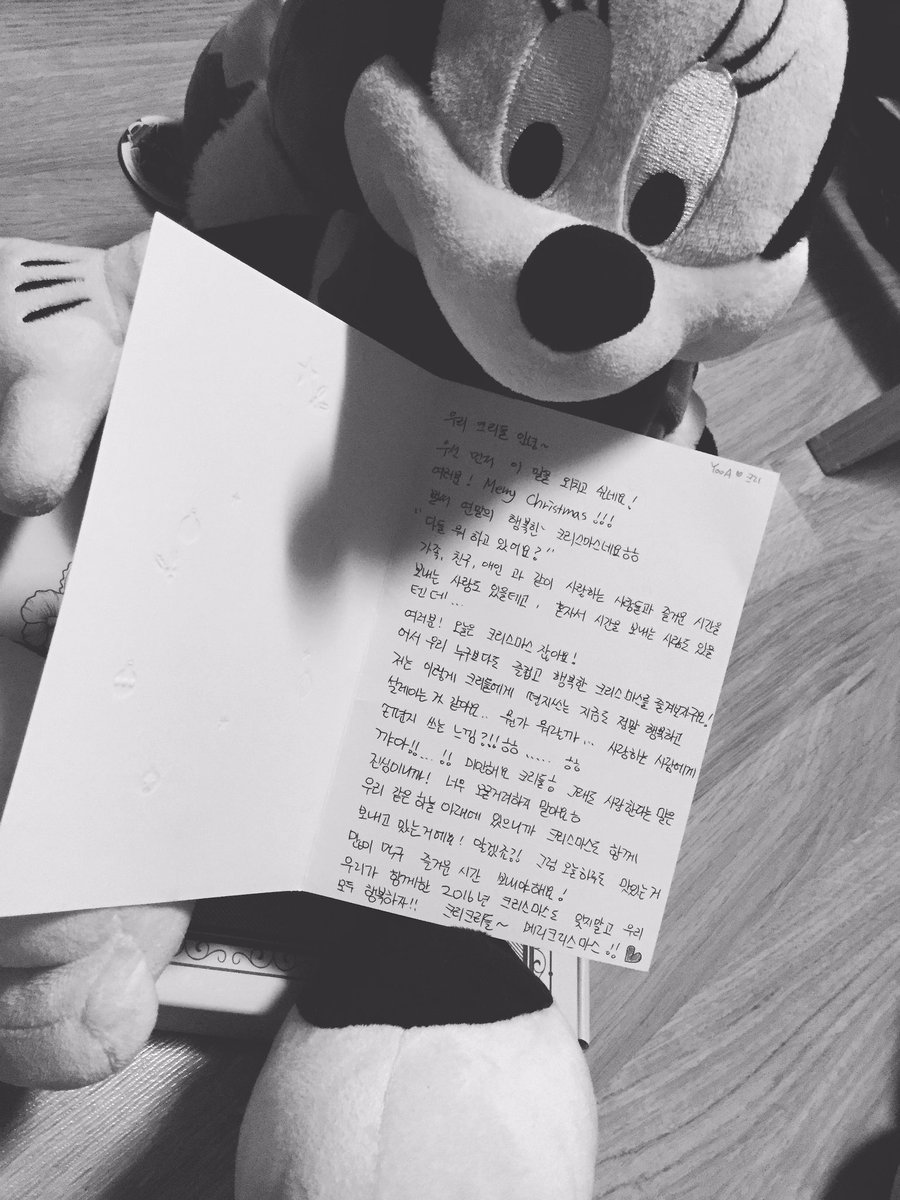 YooA ♥ 크리
우리 크리들 안녕~
우선 먼저 이 말을 외치고 싶네요!
여러분! Merry Christmas!!!
벌써 연말의 행복한 크리스마스네요ㅎㅎ
"다들 뭐 하고 있어요?"
가족, 친구, 애인 과 같이 사랑하는 사람들과 즐거운 시간을
보내는 사람도 있을테고, 혼자서 시간을 보내는 사람도 있을
텐데...
여러분! 오늘은 크리스마스 잖아요!
어서 우리 누구보다도 즐겁고 행복한 크리스마스를 즐겨보자구요!
저는 이렇게 크리들에게 편지쓰는 지금도 정말 행복하고
설레이는 거 같아요.. 뭔가 뭐랄까... 사랑하는 사람에게
손편지 쓰는 느낌?!!ㅎㅎ ..... ㅎㅎ
꺄아!!...!! 미안해요 크리들ㅎ 그래도 사랑한다는 말은
진심이니까! 너무 오글거려하지 말아요ㅎ
우리 같은 하늘 아래에 있으니까 크리스마스도 함께
보내고 있는거에요! 알겠죠?! 그럼 오늘하루도 맛있는거
많이 먹구 즐거운 시간 보내야해요!
우리가 함께한 2016년 크리스마스도 잊지말고 우리
모두 행복하자!! 크리크리들~ 메리크리스마스!! ♥